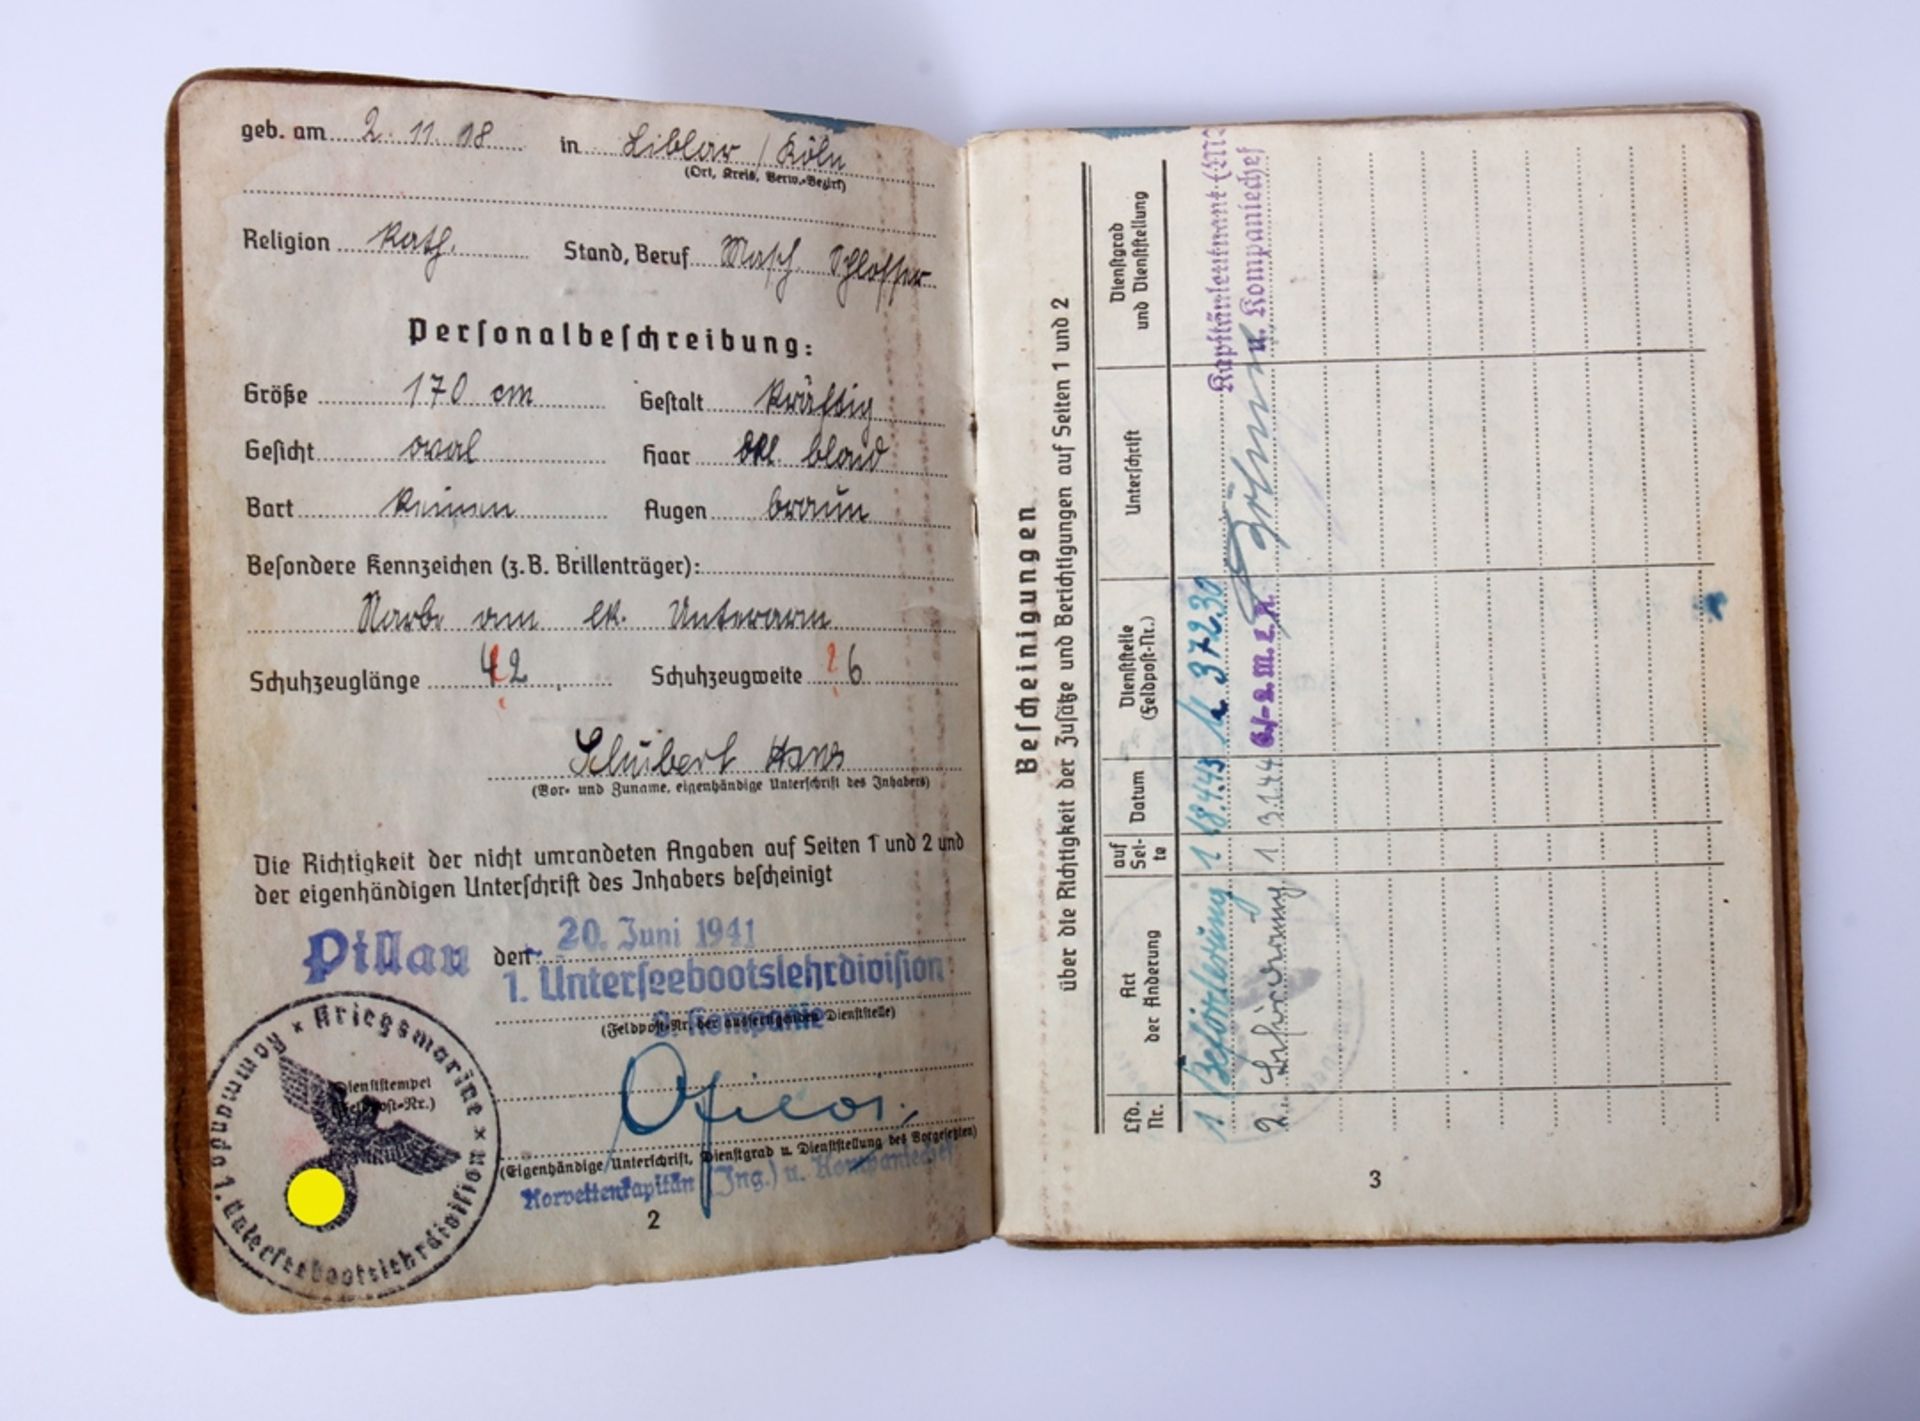 geb. am 2. 11. 18 in Liblar / Köln
(Ort, Kreis, Verw.-Bezirk)
Religion Kath. Stand, Beruf Masch Schlosser
Personalbeschreibung:
Größe 170 cm Gestalt kräftig
Gesicht oval Haar dkl. blond
Bart keinen Augen braun
Besondere Kennzeichen (z. B. Brillenträger):
Narbe am lk. Unterarm
Schuhzeuglänge 42 Schuhzeugweite 6
Schubert Hans
(Vor- und Zuname, eigenhändige Unterschrift des Inhabers)
Die Richtigkeit der nicht umrandeten Angaben auf Seiten 1 und 2 und
der eigenhändigen Unterschrift des Inhabers bescheinigt
Pillau den 20. Juni 1941
1. Unterseebootslehrdivision
Kompanie
(Feldpost-Nr. der ausfertigenden Dienststelle)
Kriegsmarine × Kommando 1. Unterseebootslehrdivision ×
Dienststempel
(Feldpost-Nr.)
(Eigenhändige Unterschrift, Dienstgrad u. Dienststellung des Vorgesetzten)
Korvettenkapitän (Ing.) u. Kompaniechef
2
Bescheinigungen
über die Richtigkeit der Zusätze und Berichtigungen auf Seiten 1 und 2
Lfd. Nr.
Art der Änderung
auf Seite
Datum
Dienststelle (Feldpost-Nr.)
Unterschrift
Dienstgrad und Dienststellung
1 Beförderung 1 1.8.4.43 M 37230
Kapitänleutnant (M
2. Beförderung 1 3.1.44
u. Kompaniechef
3